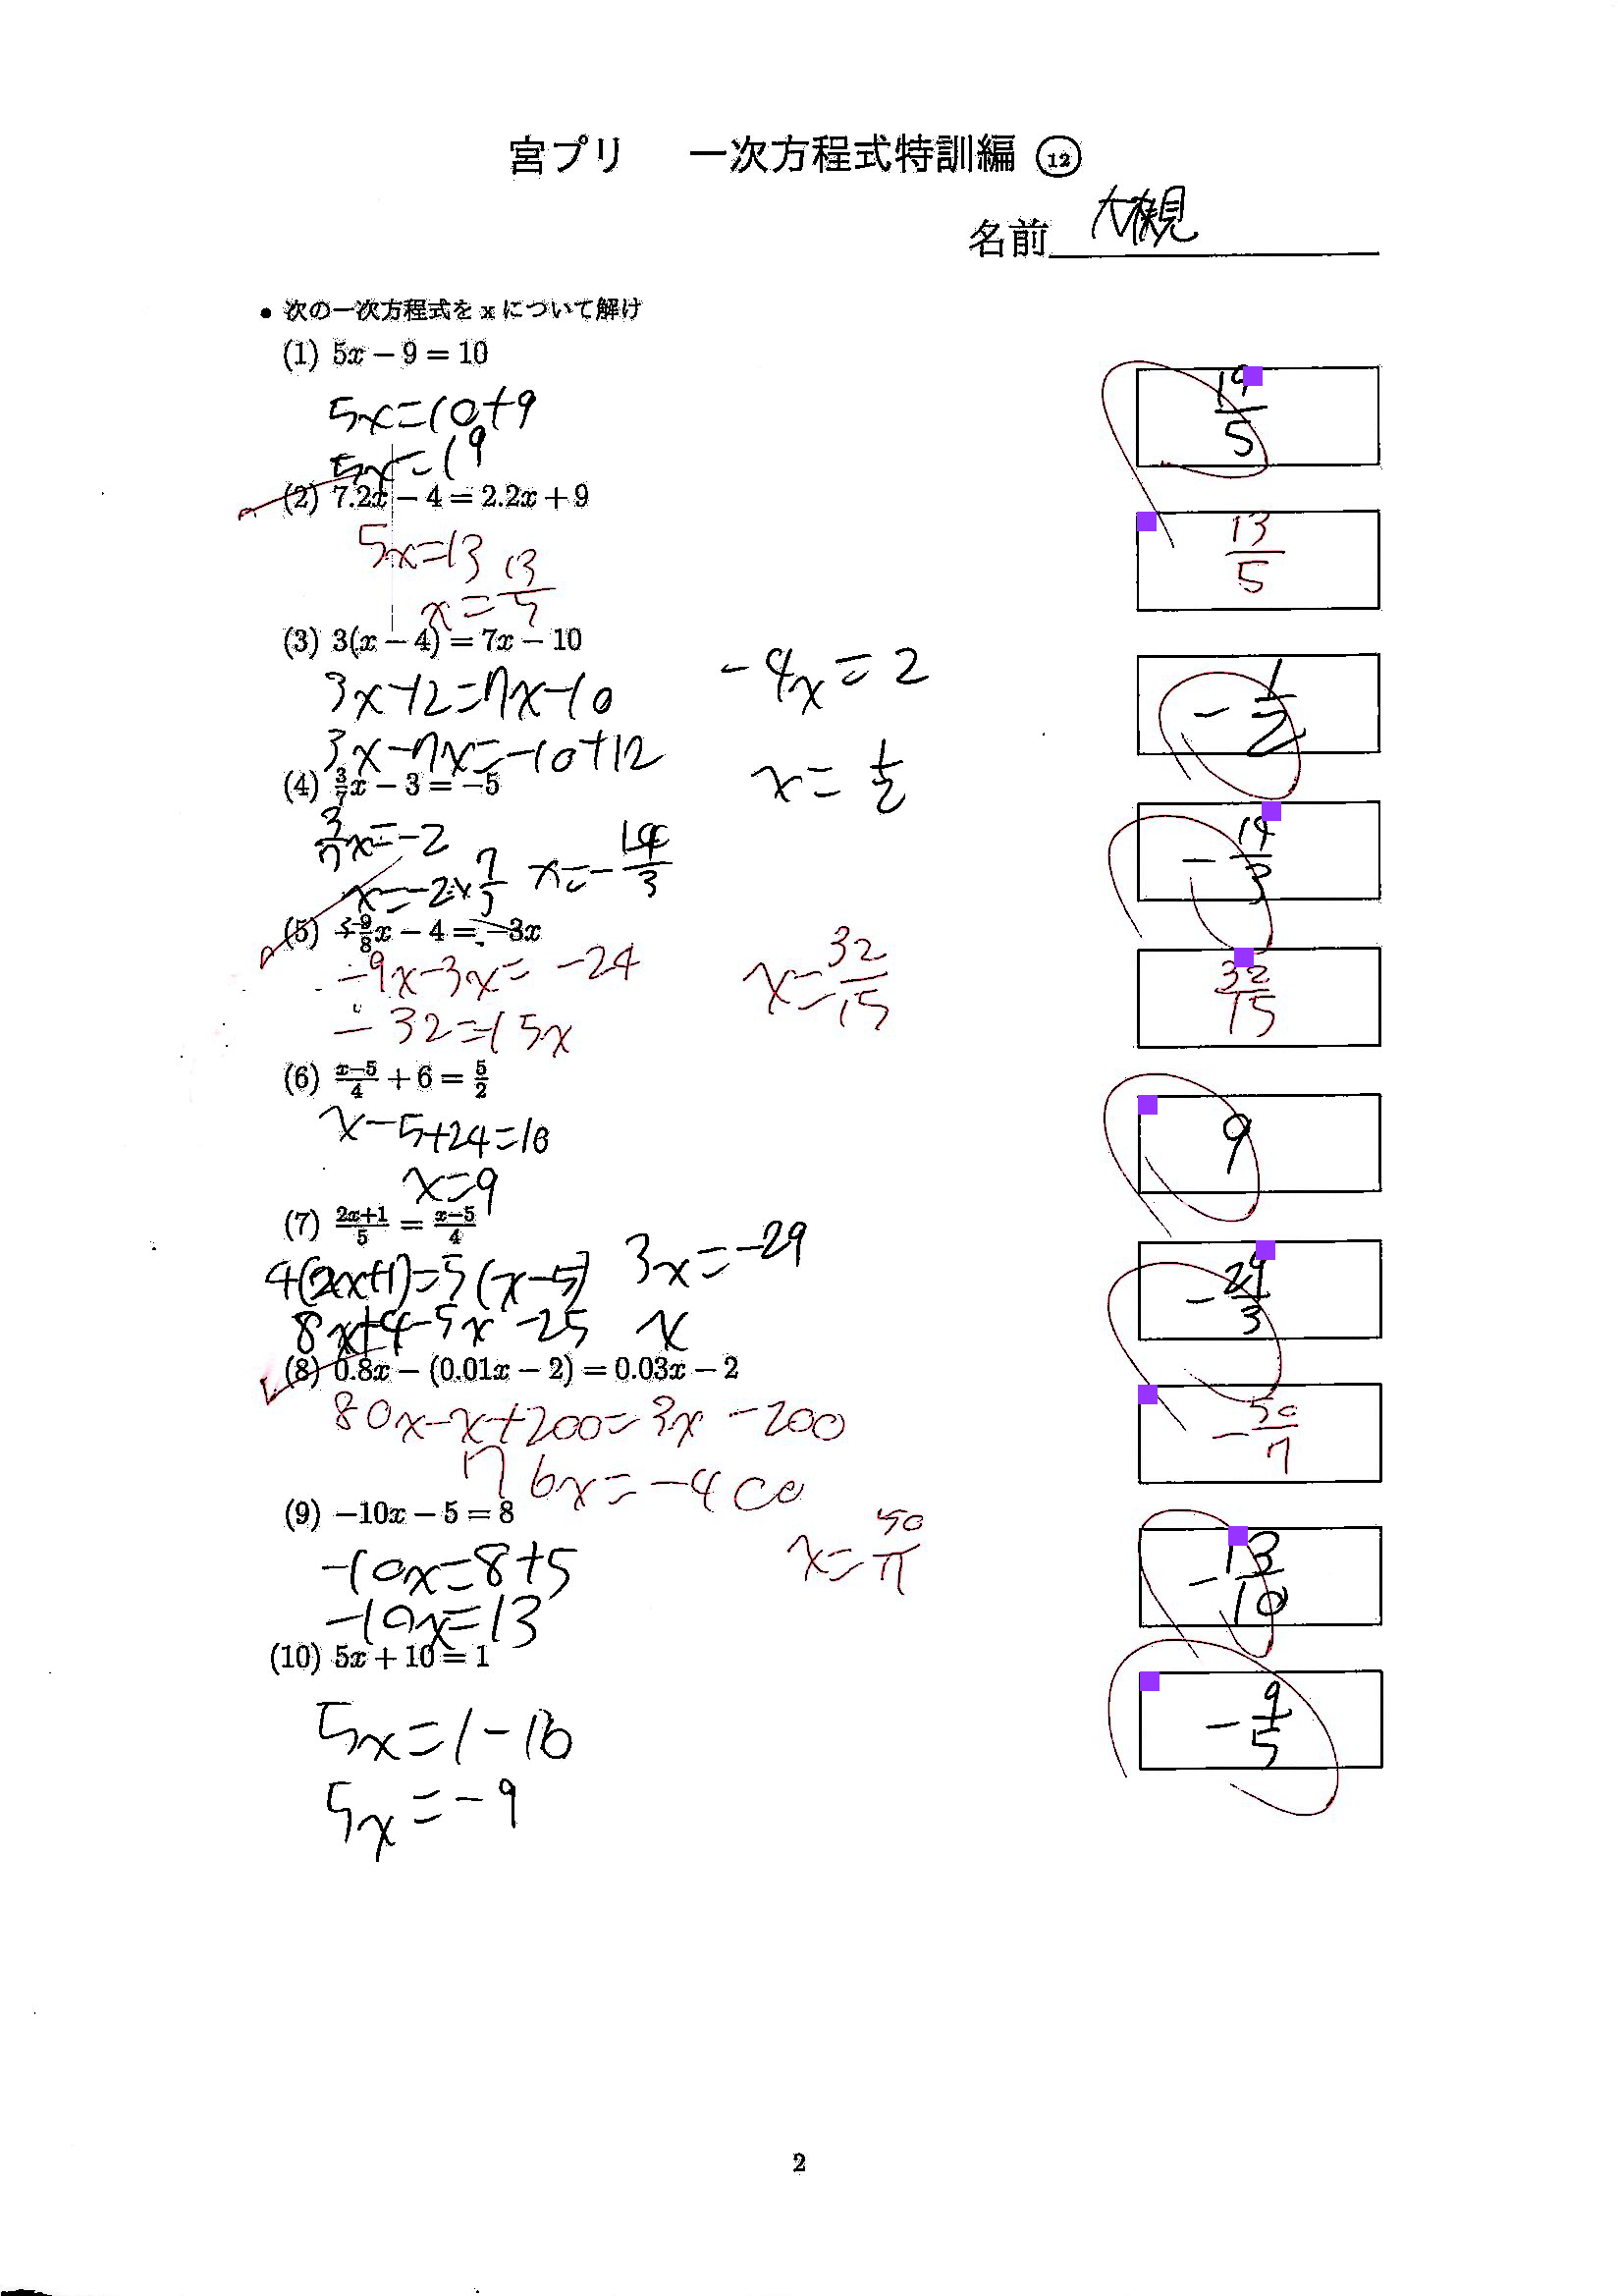 宮プリ 一次方程式特訓編 ⑫
名前 大槻
• 次の一次方程式を x について解け
(1) 5x − 9 = 10
5x=10+9
5x=19
19/5
(2) 7.2x − 4 = 2.2x + 9
5x=13
x=13/5
13/5
(3) 3(x − 4) = 7x − 10
3x-12=7x-10
3x-7x=-10+12
-4x=2
x=1/2
-1/2
(4) 3/7x − 3 = −5
3/7x=-2
x=-2×7/3 x=-14/3
-14/3
(5) 9/8x − 4 = −3x
-9x-3x=-24
-32=15x
x=32/15
32/15
(6) x−5/4 + 6 = 5/2
x-5+24=10
x=9
9
(7) 2x+1/5 = x−5/4
4(2x+1)=5(x-5) 3x=-29
8x+4-5x -25 x
-29/3
(8) 0.8x − (0.01x − 2) = 0.03x − 2
80x-x+200=3x-200
76x=-400
x=50/7
-50/7
(9) −10x − 5 = 8
-10x=8+5
-10x=13
-13/10
(10) 5x + 10 = 1
5x=1-10
5x=-9
-9/5
2